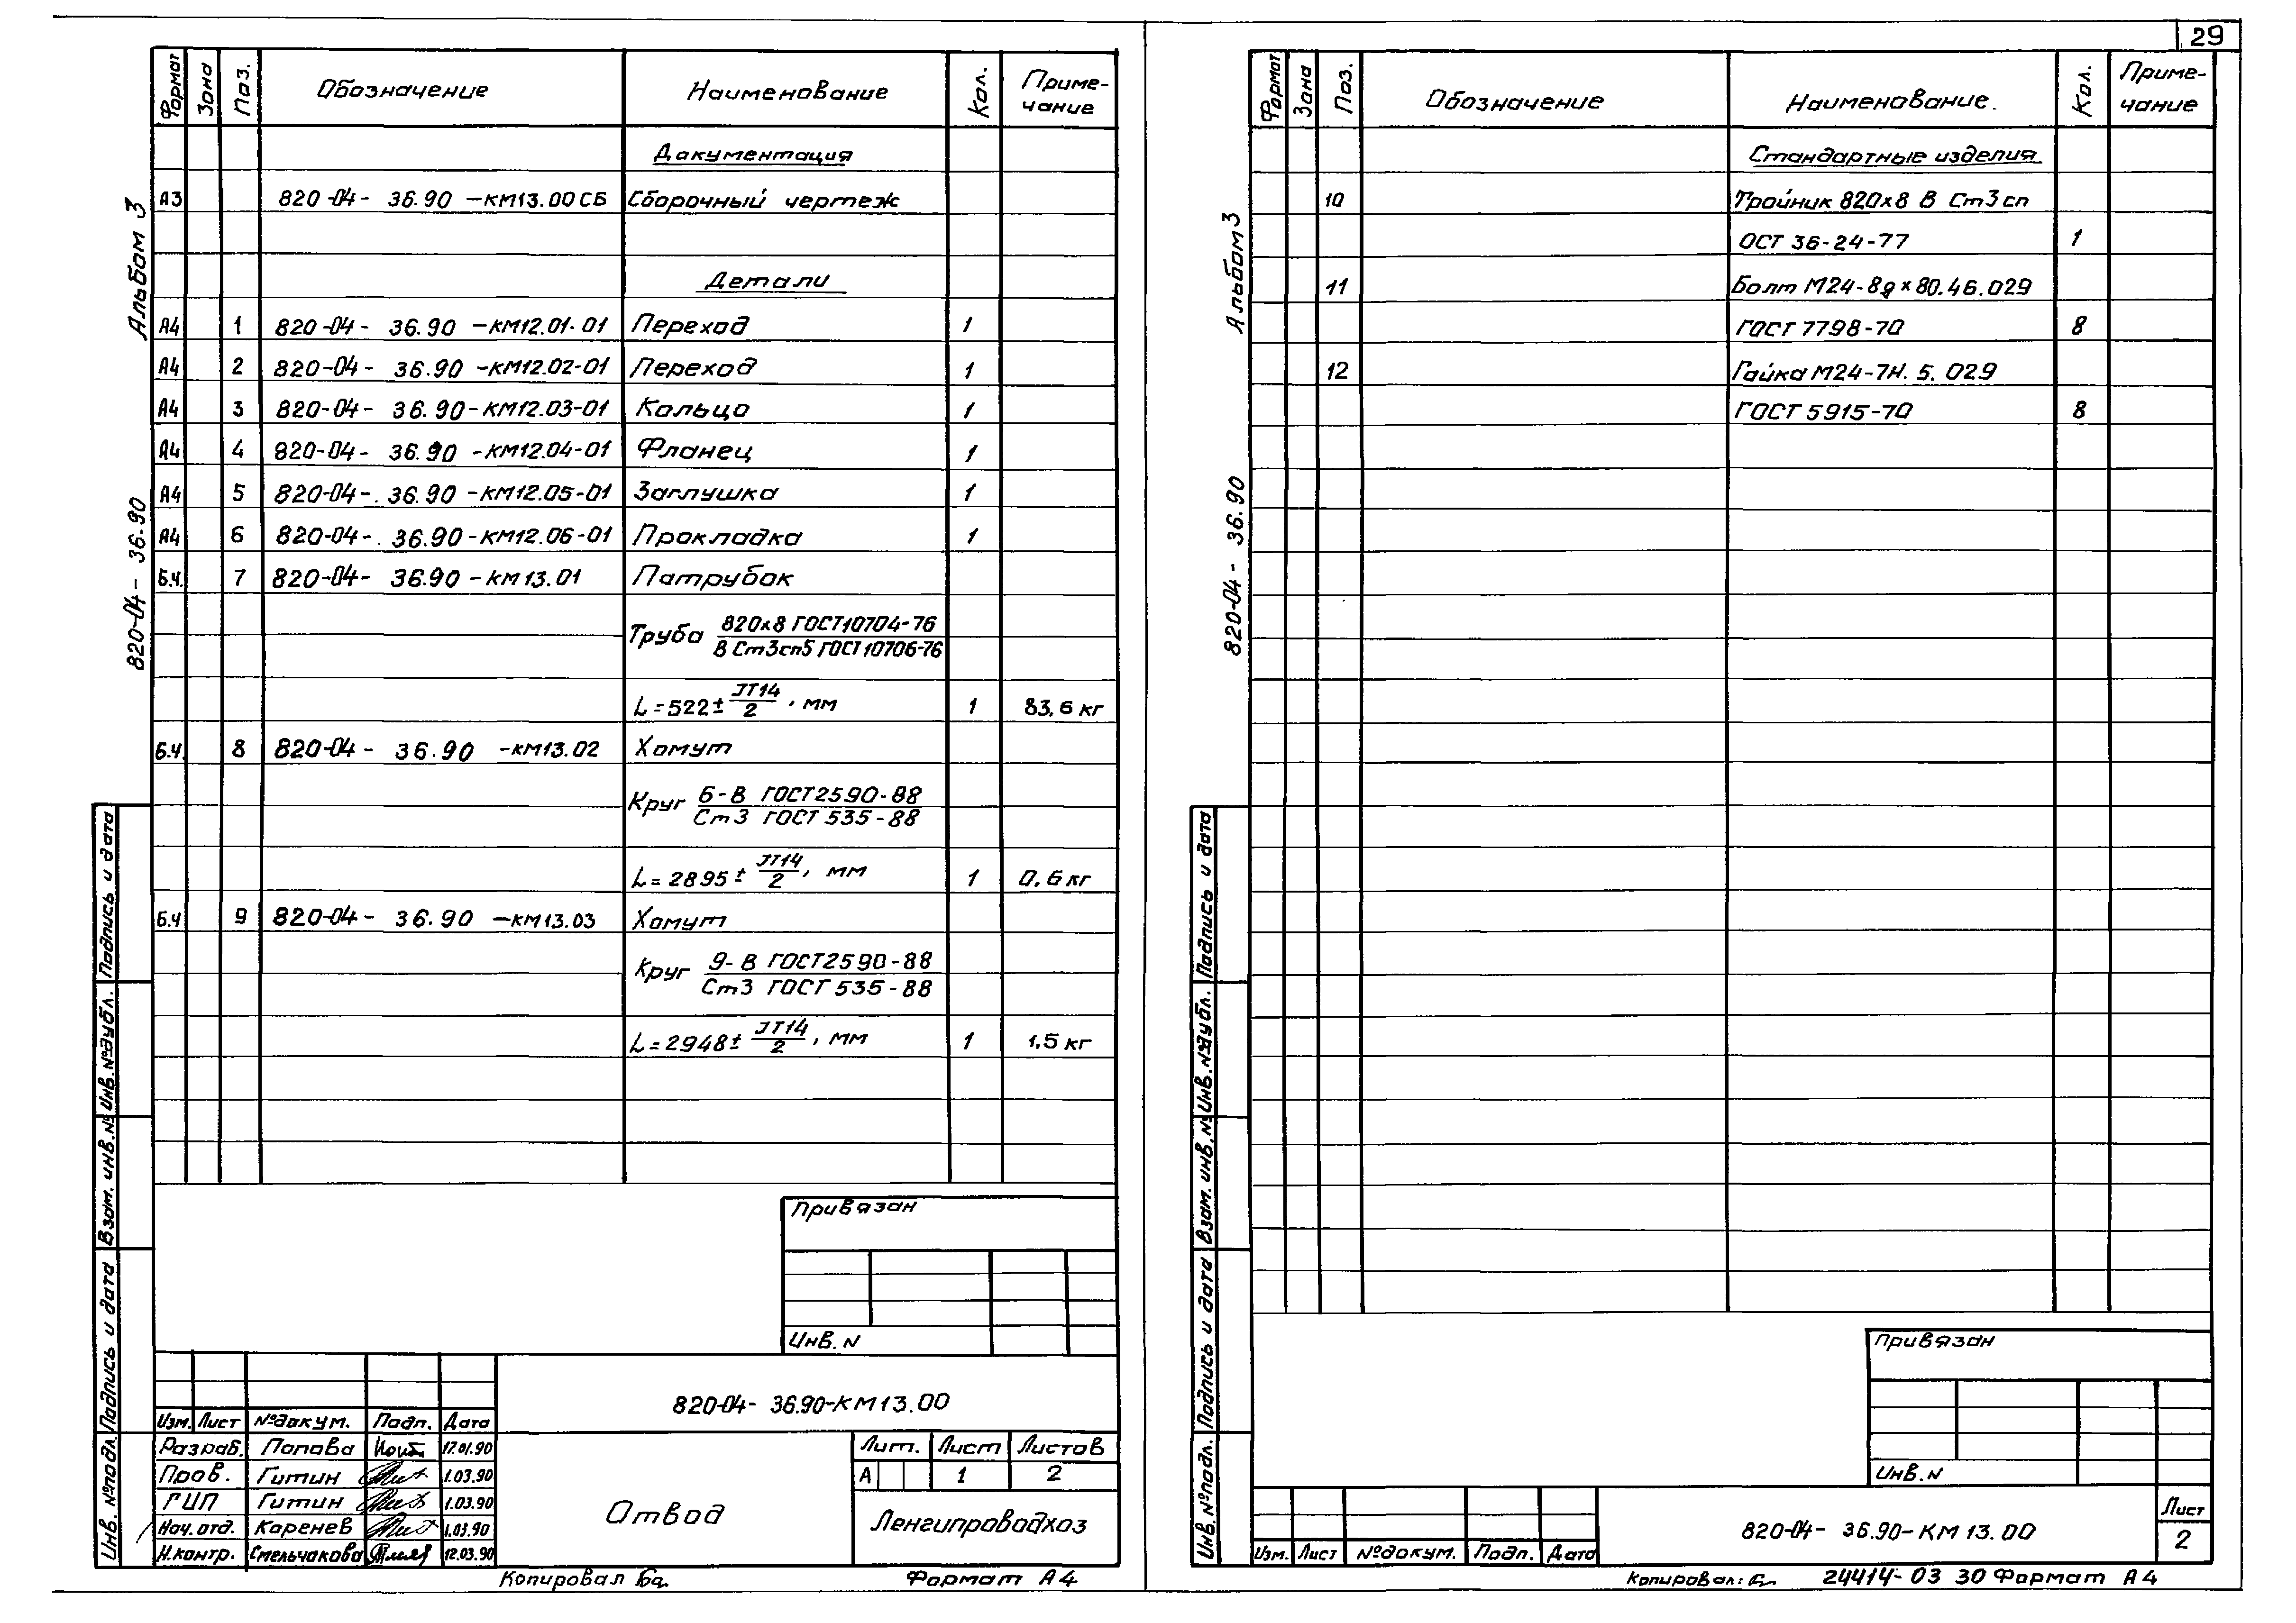 29
Формат Зона Поз. Обозначение Наименование Кол. Приме-
чание
Документация
А3 820-04- 36.90 -КМ13.00СБ Сборочный чертеж
Детали
А4 1 820-04- 36.90 -КМ12.01-01 Переход 1
А4 2 820-04- 36.90 -КМ12.02-01 Переход 1
А4 3 820-04- 36.90-КМ12.03-01 Кольцо 1
А4 4 820-04- 36.90 -КМ12.04-01 Фланец 1
А4 5 820-04-. 36.90 -КМ12.05-01 Заглушка 1
А4 6 820-04-. 36.90-КМ12.06-01 Прокладка 1
Б.Ч. 7 820-04- 36.90 -КМ13.01 Патрубок
820х8 ГОСТ10704-76
Труба
В Ст3сп5 ГОСТ10706-76
L=522± JT14/2, мм 1 83,6 кг
Б.Ч. 8 820-04- 36.90 -КМ13.02 Хомут
6-В ГОСТ2590-88
Круг
Ст3 ГОСТ 535-88
L=2895± JT14/2, мм 1 0,6 кг
Б.Ч 9 820-04- 36.90 -КМ13.03 Хомут
9-В ГОСТ2590-88
Круг
Ст3 ГОСТ 535-88
L=2948± JT14/2, мм 1 1,5 кг
Альбом 3
820-04- 36.90
Подпись и дата
Инв.№дубл.
Взам. инв.№
Подпись и дата
Инв. №подл.
Привязан
Инв. N
820-04- 36.90-КМ13.00
Изм. Лист №докум. Подп. Дата
Разраб. Попова 17.01.90
Пров. Гитин 1.03.90
ГИП Гитин 1.03.90
Нач. отд. Каренев 1.03.90
Н.контр. Смельчакова 12.03.90
Отвод
Лит. Лист Листов
А 1 2
Ленгипроводхоз
Копировал
Формат А4
Формат Зона Поз. Обозначение Наименование. Кол. Приме-
чание
Стандартные изделия
10 Тройник 820х8 В Ст3сп
ОСТ 36-24-77 1
11 Болт М24-8gх80.46.029
ГОСТ 7798-70 8
12 Гайка М24-7Н. 5. 029
ГОСТ 5915-70 8
Альбом 3
820-04- 36.90
Подпись и дата
Инв.№дубл.
Взам. инв.№
Подпись и дата
Инв.№подл.
Привязан
Инв. N
Изм. Лист №докум. Подп. Дата
820-04- 36.90-КМ13.00
Лист
2
Копировал:
24414-03 30 Формат А4